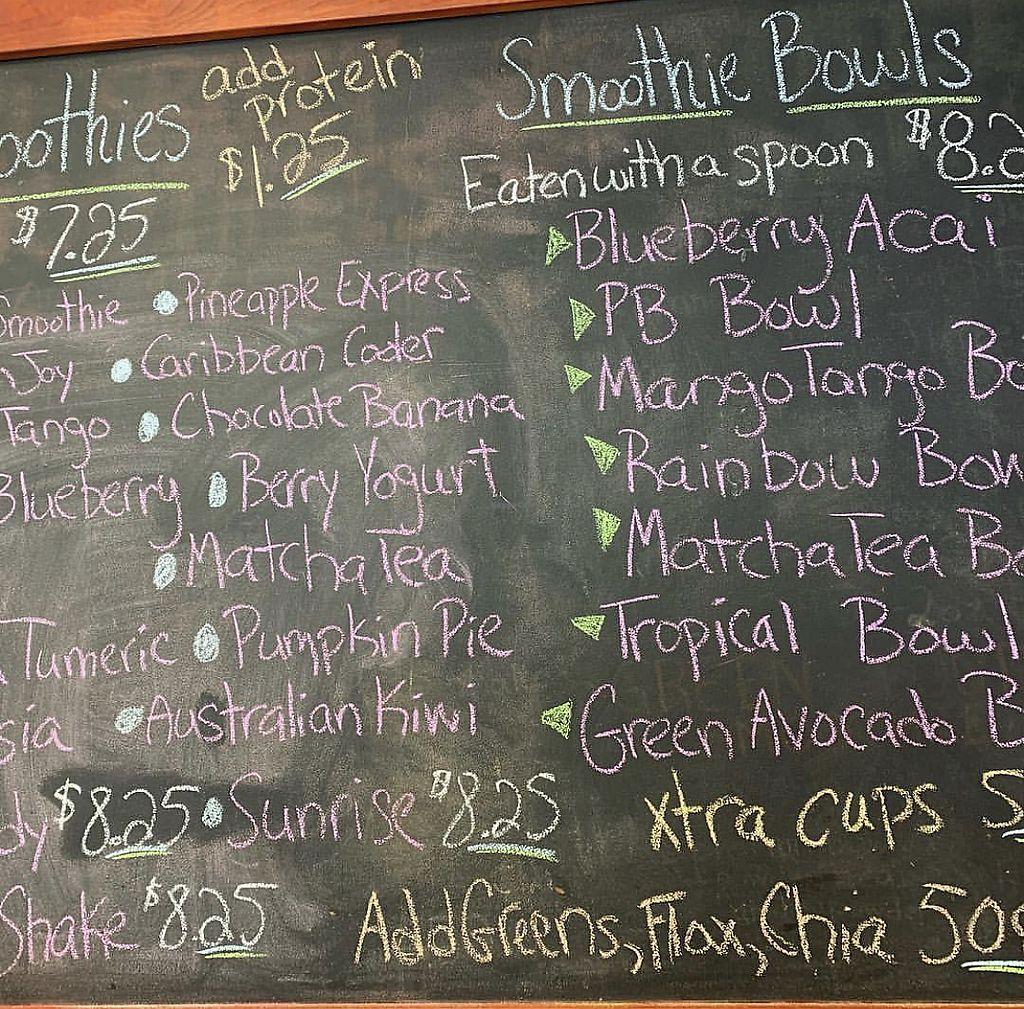 oothies
add protein
$1.25
$7.25
Smoothie • Pineapple Express
Joy • Caribbean Cooler
Tango • Chocolate Banana
Blueberry • Berry Yogurt
• Matcha Tea
Tumeric • Pumpkin Pie
sia • Australian Kiwi
dy $8.25 • Sunrise $8.25
Shake $8.25
Smoothie Bowls
Eaten with a spoon $8.
Blueberry Acai
PB Bowl
Mango Tango Bo
Rainbow Bow
Matcha Tea Bo
Tropical Bowl
Green Avocado B
xtra cups 5
Add Greens, Flax, Chia 50¢